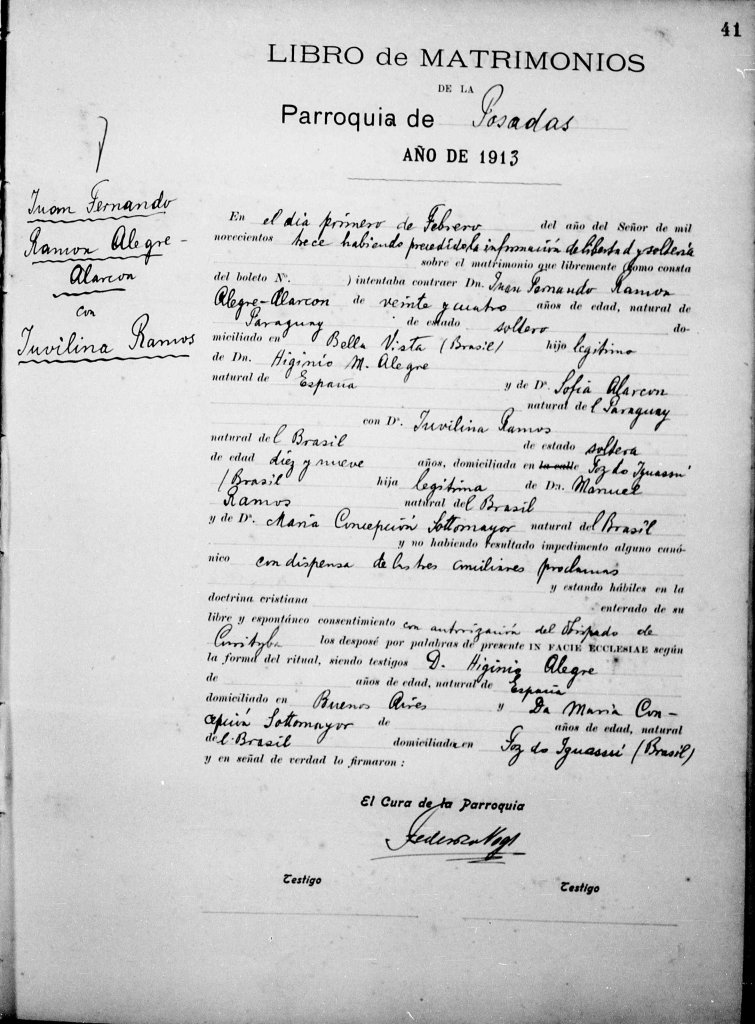 41
LIBRO de MATRIMONIOS
DE LA
Parroquia de Posadas
AÑO DE 1913
Juan Fernando
Ramon Alegre-
Alarcon
con
Juvilina Ramos
En el dia primero de Febrero del año del Señor de mil
novecientos trece habiendo precedido la información de libertad y solteria
sobre el matrimonio que libremente (como consta
del boleto N°. ) intentaba contraer Dn. Juan Fernando Ramon
Alegre-Alarcon de veinte y cuatro años de edad, natural de
Paraguay de estado soltero do-
miciliado en Bella Vista (Brasil) hijo legitimo
de Dn. Higinio M. Alegre
natural de España y de Da. Sofia Alarcon
natural del Paraguay
con Da. Juvilina Ramos
natural del Brasil de estado soltera
de edad diez y nueve años, domiciliada en la calle Foz do Iguassú
(Brasil hija legitima de Dn. Manuel
Ramos natural del Brasil
y de Da. Maria Concepción Sottomayor natural del Brasil
y no habiendo resultado impedimento alguno canó-
nico con dispensa de las tres conciliares proclamas
y estando hábiles en la
doctrina cristiana enterado de su
libre y espontáneo consentimiento con autorización del Obispado de
Curityba los desposé por palabras de presente IN FACIE ECCLESIAE según
la forma del ritual, siendo testigos D. Higinio Alegre
de años de edad, natural de España
domiciliado en Buenos Aires y Da Maria Con-
cepción Sottomayor de años de edad, natural
del Brasil domiciliada en Foz do Iguassú (Brasil)
y en señal de verdad lo firmaron:
El Cura de la Parroquia
Federico Vogt
Testigo
Testigo